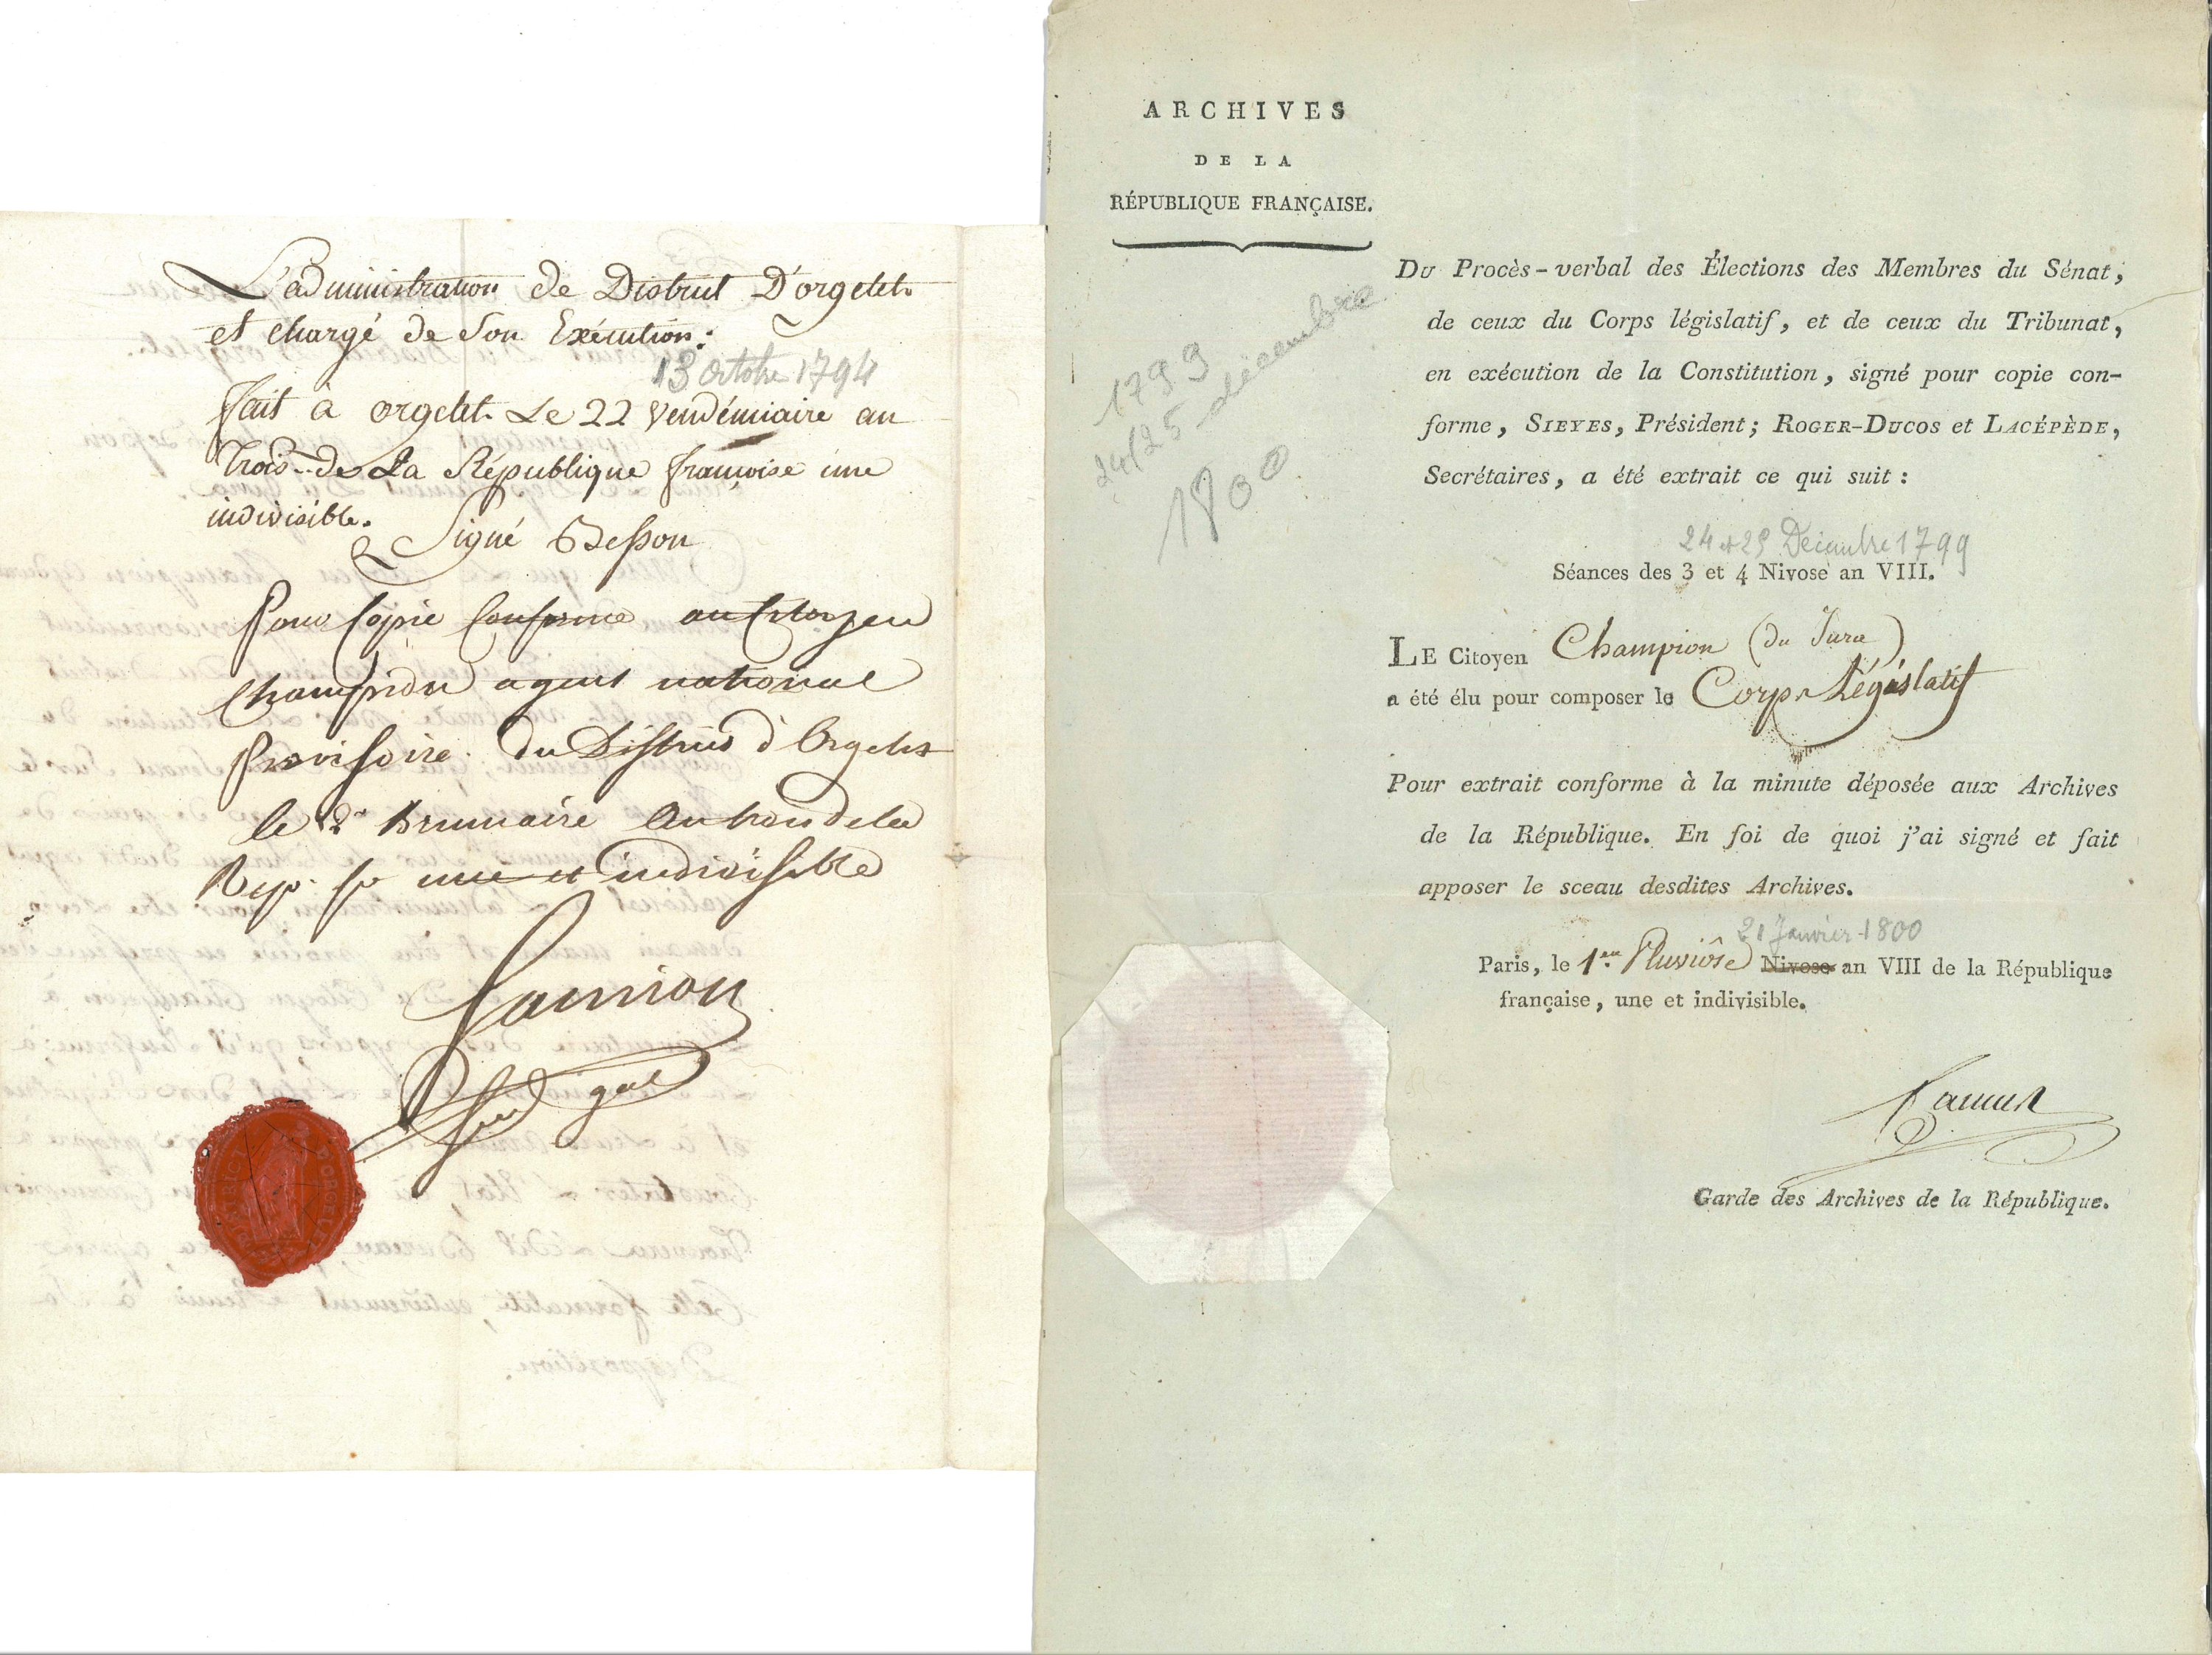 L'administration de District D'orgelet
est chargé de Son Exécution:
13 octobre 1794
fait à orgelet Le 22 Vendémiaire an
Trois de La République françoise une
indivisible.
Signé Besson
Pour Copie Conforme au Citoyen
Champion agent national
Provisoire du District d'Orgelet
le 2e Brumaire an trois de la
Rep. fse une et indivisible
DISTRICT D'ORGELET
ARCHIVES
DE LA
RÉPUBLIQUE FRANÇAISE.
1799
24/25 décembre
1800
Du Procès-verbal des Élections des Membres du Sénat,
de ceux du Corps législatif, et de ceux du Tribunat,
en exécution de la Constitution, signé pour copie con-
forme, SIEYES, Président; ROGER-DUCOS et LACÉPÈDE,
Secrétaires, a été extrait ce qui suit :
24 et 25 Décembre 1799
Séances des 3 et 4 Nivose an VIII.
LE Citoyen Champion (du Jura)
a été élu pour composer le Corps Législatif
Pour extrait conforme à la minute déposée aux Archives
de la République. En foi de quoi j'ai signé et fait
apposer le sceau desdites Archives.
21 Janvier 1800
Paris, le 1er Pluviôse Nivose an VIII de la République
française, une et indivisible.
Camus
Garde des Archives de la République.